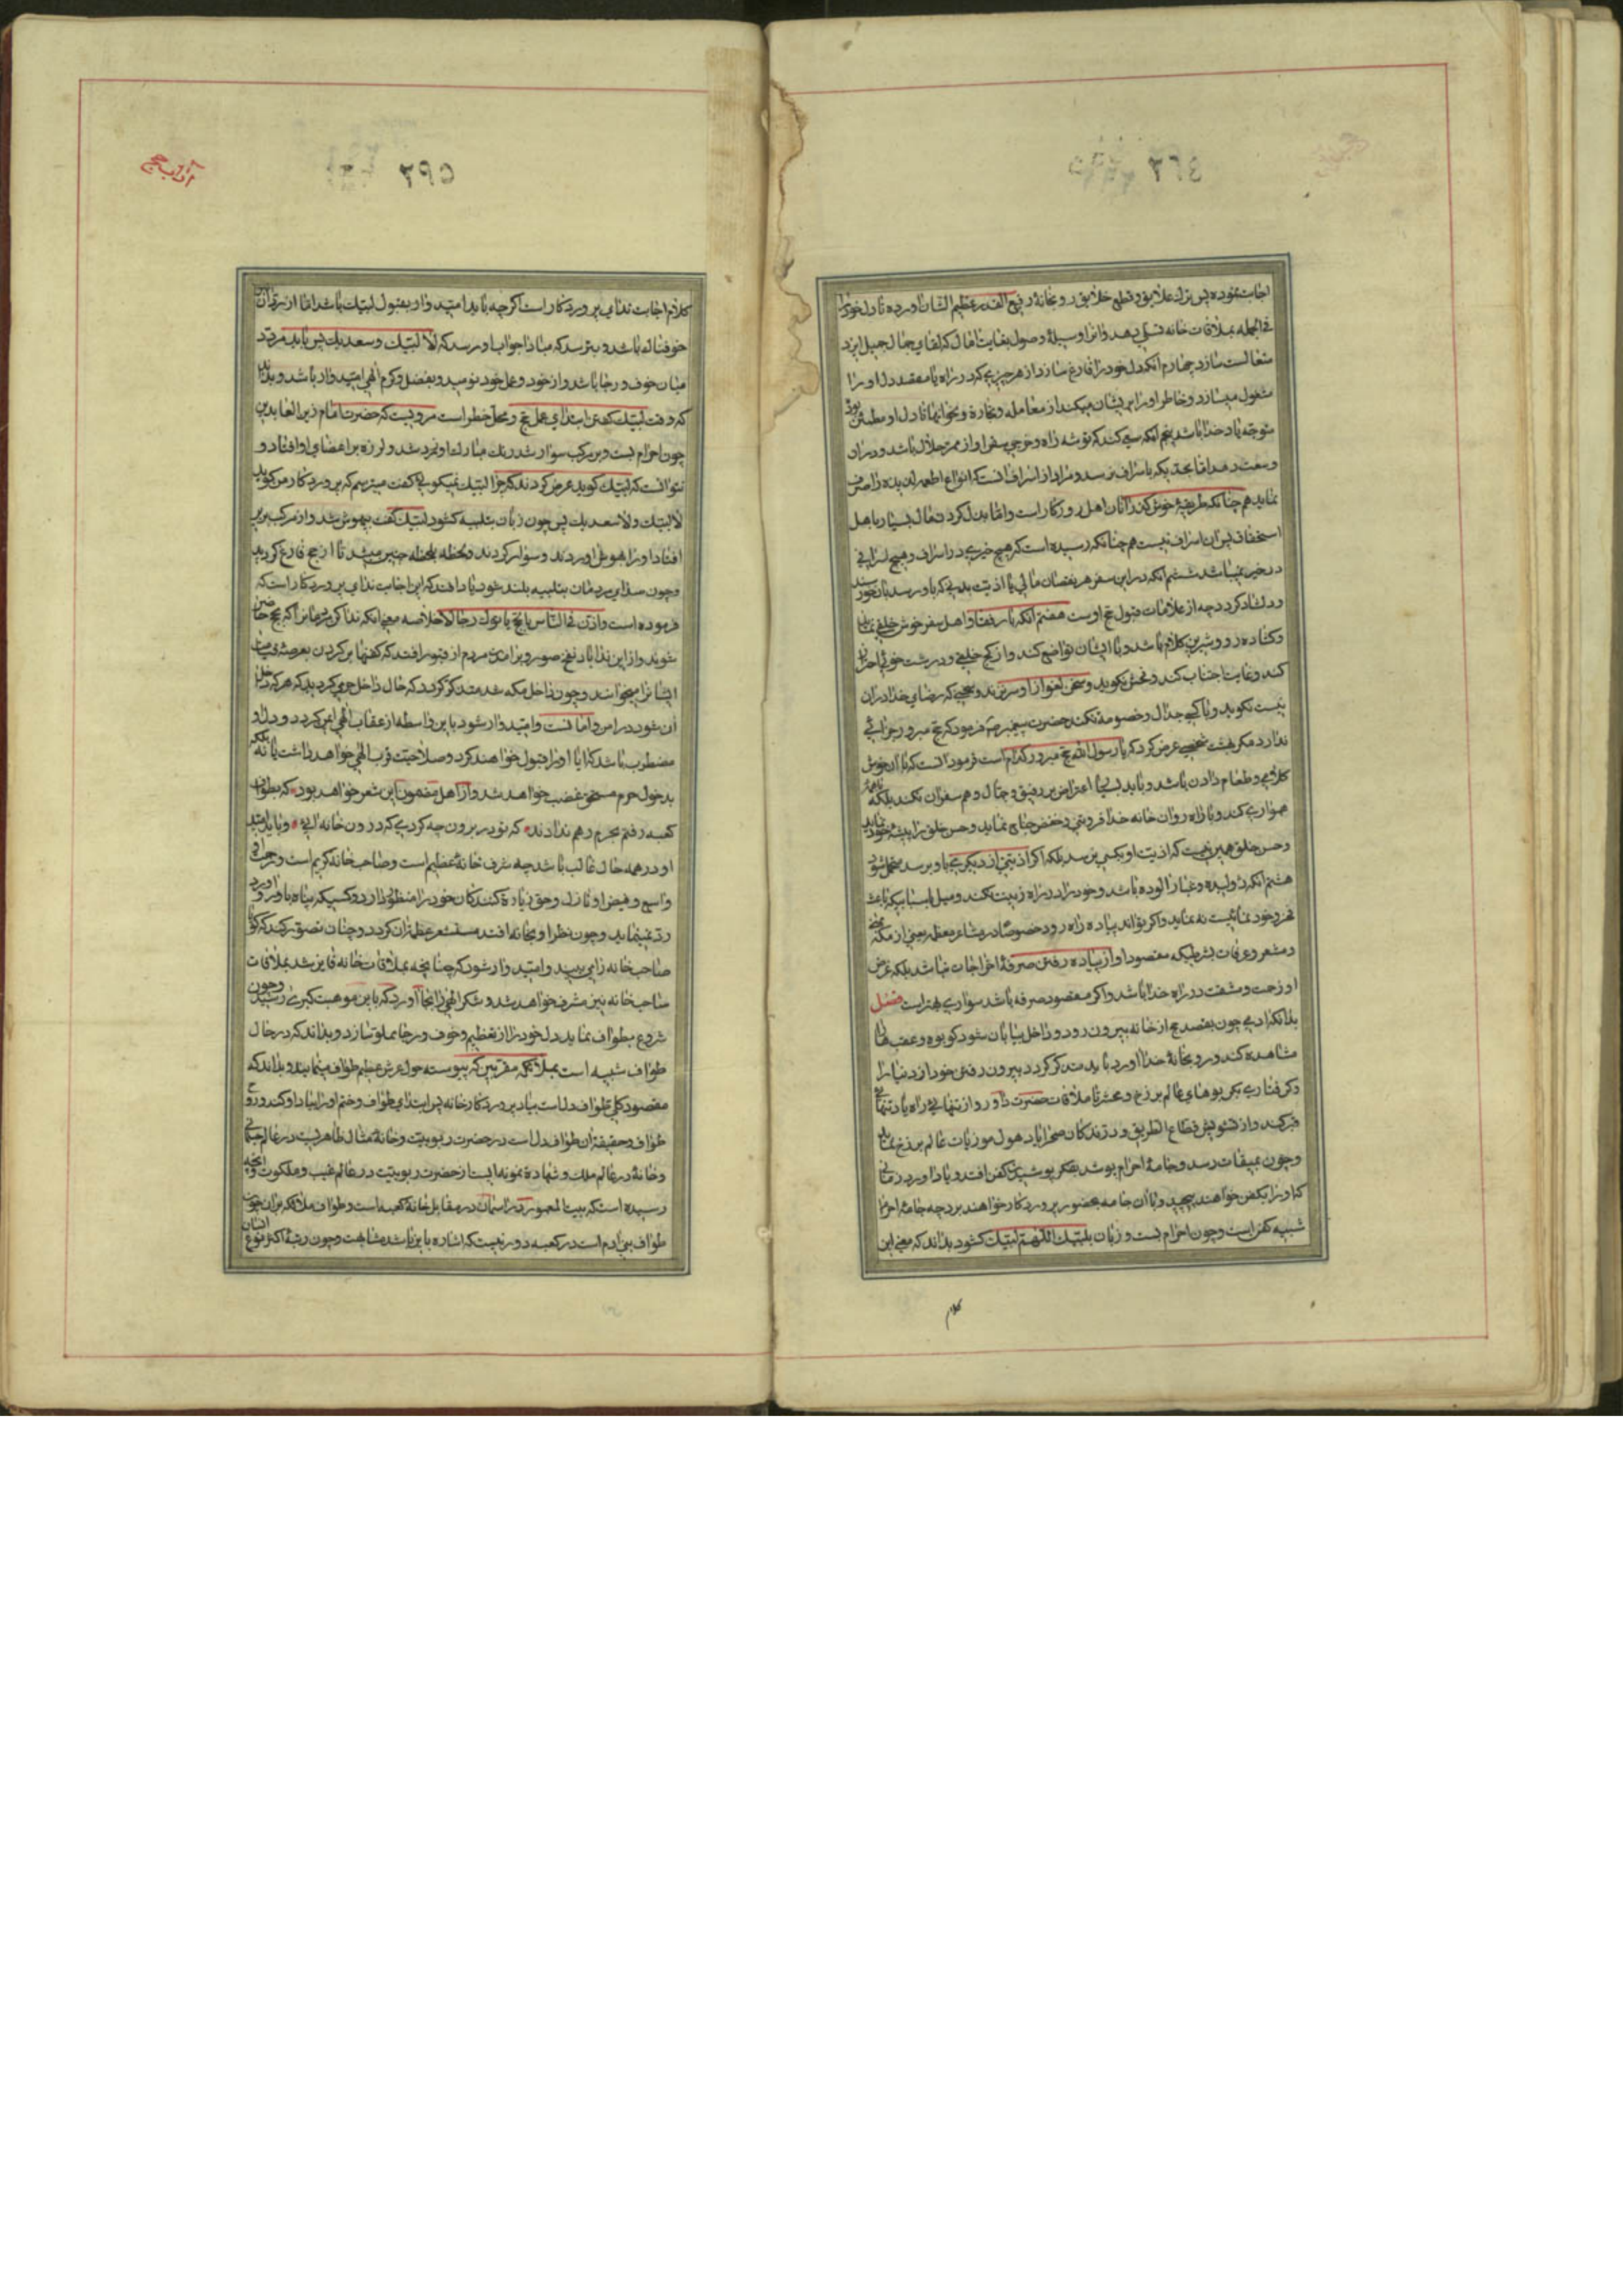 اجابت نموده پس بترك علایق و قطع خلایق رو بخانهٔ رفیع القدر عظیم الشان آورده تا دل خود را
فی الجمله بملاقات خانه تسلی دهد و آنرا وسیلهٔ وصول بغایت آمال که لقای جمال جمیل ایزد
متعالست سازد چهارم آنکه دل خود را فارغ سازد از هر چیزیکه در راه یا مقصد دل او را
مشغول میسازد و خاطر او را پریشان میکند از معامله و تجارة و نحو اینها تا دل او مطمئن بوده
متوجه یاد خدا باشد پنجم آنکه سعی کند که توشه راه و خرجی سفر او از ممر حلال باشد و در آن
وسعت دهد اما بحدیکه باسراف نرسد و مراد از اسراف آنست که انواع اطعمه لذیذه را صرف
نماید همچنانکه طریقهٔ خوش گذرانان اهل روزگار است و اما بذل کردن مال بسیار باهل
استحقاق پس آن اسراف نیست همچنانکه رسیده است که هیچ خیری در اسراف و هیچ اسرافی
در خیر نمیباشد ششم آنکه در این سفر هر نقصان مالی یا اذیت بدنی که باو رسد بآن خورسند
و دلشاد گردد چه از علامات قبول حج اوست هفتم آنکه با رفقا و اهل سفر خوش خلقی نماید
و گشاده رو و شیرین کلام باشد و با ایشان تواضع کند و از کج خلقی و درشت خوئی احتراز
کند و غایت اجتناب کند و فحش نگوید و سخن لغو از او سر نزند و سخنی که رضای خدا در آن
نیست نگوید و با کسی جدال و خصومة نکند حضرت پیغمبر ص فرمود که حج مبرور جزائی
ندارد مگر بهشت شخصی عرض کرد که یا رسول الله حج مبرور کدام است فرمود آنست که با آن خوش
کلامی و طعام دادن باشد و باید بسیار اعتراض بر رفیق و جمال و هم سفران نکند بلکه با همه
همواری کند و با راه روان خانه خدا فروتنی و خفض جناح نماید و حسن خلق را پیشهٔ خود نماید
و حسن خلق همین نیست که اذیت او بکسی نرسد بلکه اگر اذیتی از دیگری باو برسد متحمل شود
هشتم آنکه ژولیده و غبار آلوده باشد و خود را در راه زینت نکند و میل باسبابیکه باعث
فخر و خود نمائیست نه نماید و اگر تواند پیاده راه رود خصوصا در مشاعر معظمه یعنی از مکه
و مشعر و عرفات بشرطیکه مقصود او از پیاده رفتن صرفهٔ اخراجات نباشد بلکه غرض
او زحمت و مشقت در راه خدا باشد و اگر مقصود صرفه باشد سواری بهتر است فصل
بدانکه آدمی چون بقصد حج از خانه بیرون رود و داخل بیابان شود
مشاهده کند و رو بخانهٔ خدا آورد باید متذکر گردد بیرون رفتن خود از دنیا را
و گرفتاری بگریوهای عالم برزخ و محشر تا ملاقات حضرت داور و از تنهائی راه یاد تنهائی
قبر کند و از تشویش قطاع الطریق و درندگان صحرا یاد هول موزیات عالم برزخ نماید
و چون بمیقات رسد و جامهٔ احرام پوشد بفکر پوشیدن کفن افتد و یاد آورد زمانی
که او را بکفن خواهند پیچید و با آن جامه بحضور پروردگار خواهند برد چه جامهٔ احرام
شبیه کفن است و چون احرام بست و زبان بلبیك اللهم لبیك گشود بداند که معنی این
کلام
آداب حج
۳۹۵
کلام اجابت ندای پروردگار است اگر چه باید امیدوار بقبول لبیك باشد اما از رد آن
خوفناك باشد و بترسد که مبادا جواب او رسد که لا لبیك و سعدیك پس باید مردد
میان خوف و رجا باشد و از خود و عمل خود نومید و بفضل و کرم الهی امیدوار باشد و بداند
که وقت لبیك گفتن ابتدای عمل حج و محل خطر است مرویست که حضرت امام زین العابدین
چون احرام بست و بر مرکب سوار شد رنك مبارك او زرد شد و لرزه بر اعضای او افتاد و
نتوانست که لبیك گوید عرض کردند که چرا لبیك نمیگوئی گفت میترسم که پروردگار من گوید
لا لبیك و لا سعدیك پس چون زبان بتلبیه گشود لبیك گفت بیهوش شد و از مرکب بزیر
افتاد او را بهوش آوردند و سوار کردند و لحظه بلحظه چنین میشد تا از حج فارغ گردید
و چون صدای مردمان بتلبیه بلند شود یاد آهند که این اجابت ندای پروردگار است که
فرموده است و اذن فی الناس بالحج یأتوك رجالا خلاصه معنی آنکه ندا کن مردمانرا که بحج حاضر
شوند و از این ندا یاد نفخ صور و برآمدن مردم از قبور افتد که کفنها بر گردن بعرصهٔ قیامت
ایشانرا میخوانند و چون داخل مکه شد متذکر گردد که حال داخل حرمی گردید که هر که داخل
آن شود در امن و امانست و امیدوار شود باین واسطه از عقاب الهی ایمن گردد و دل او
مضطرب باشد که آیا او را قبول خواهند کرد و صلاحیت قرب الهی خواهد داشت یا نه بلکه
بدخول حرم مستحق غضب خواهد شد و از اهل مضمون این شعر خواهد بود که بطواف
کعبه رفتم بحرم رهم ندادند که تو در برون چه کردی که درون خانه آیی و باید امید
او در همه حال غالب باشد چه شرف خانهٔ عظیم است و صاحب خانه کریم است و رحمت او
واسع و فیض او نازل و حق زیارة کنندکان خود را منظور دارد و کسیکه پناه باو آورد او را
رد نمینماید و چون نظر او بخانه افتد مستشعر عظمت آن گردد و چنان تصور کند که گویا
صاحب خانه را می بیند و امیدوار شود که چنانچه بملاقات خانه فایز شد بملاقات
صاحب خانه نیز مشرف خواهد شد و شکر الهی را بجا آورد که باین موهبت کبری رسید و چون
شروع بطواف نماید دل خود را از تعظیم و خوف و رجا مملو سازد و بداند که در حال
طواف شبیه است بملائکه مقربین که پیوسته حول عرش عظیم طواف مینمایند و بداند که
مقصود کلی طواف دل است بیاد پروردگار خانه پس ابتدای طواف و ختم او را بیاد او کند و روح
طواف و حقیقة آن طواف دل است در حضرت ربوبیت و خانهٔ مثال ظاهریست در عالم جسمانی
و خانهٔ در عالم ملك و شهادة نمونه ایست از حضرت ربوبیت در عالم غیب و ملکوت و آنچه
رسیده است که بیت المعمور در آسمان در مقابل خانهٔ کعبه است و طواف ملائکه بر آن چون
طواف بنی آدم است در کعبه دور نیست که اشاره باین باشد مشابهت و چون رتبهٔ اکثر نوع انسان